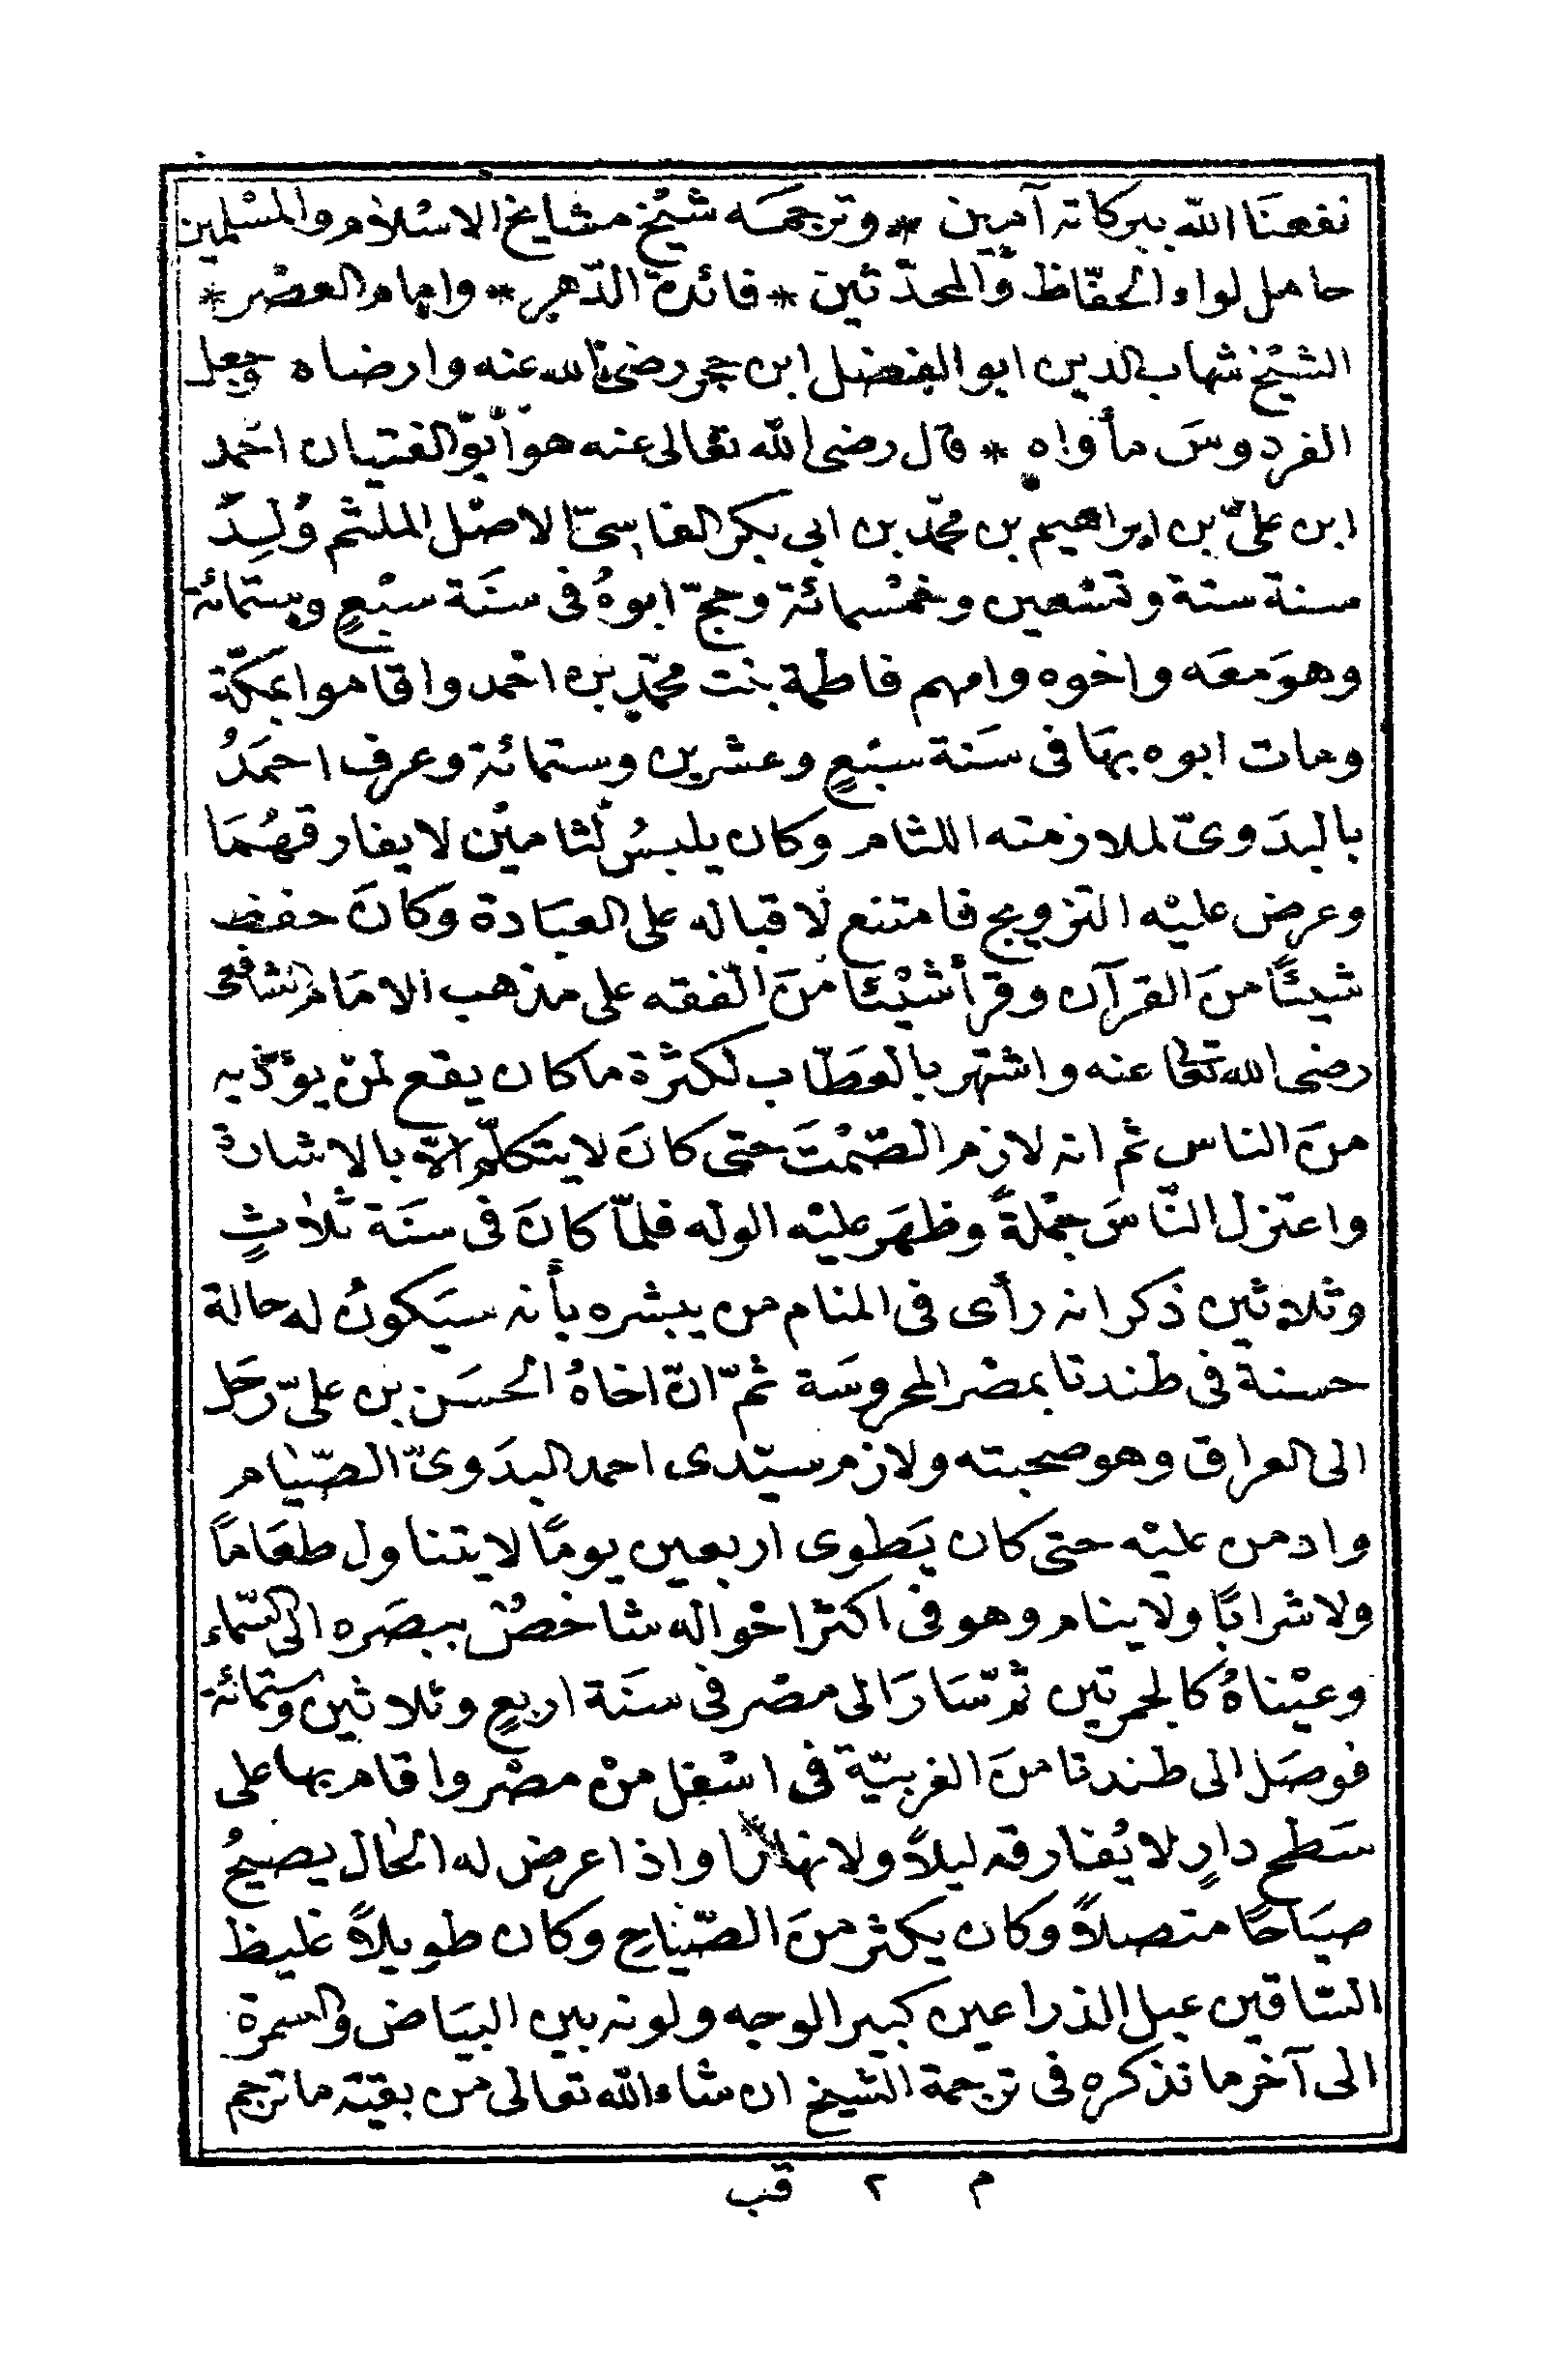 نفعنَا الله ببركاته آميين * وترجمَه شيْخ مشايخ الاسْلام والمسْلمين
حامل لواء الحفّاظ والمحدّثين * فائدة الدّهر * وامام العصْر *
الشيْخ شهاب الدين ابو الفضل ابن حجر رضى الله عنه وارضاه وجعل
الفردوسَ مأواه * قال رضى الله تعالى عنه هو أبو الفتيان احْمد
ابن علىّ بن ابراهيم بن محمّد بن ابى بكر الفاسىّ الاصْل الملثم وُلِدَ
سنة ستة وتسْعين وخمْسمائة وحجّ ابوهُ فى سنَة سبْعٍ وستمائة
وهوَ معَه واخوه وامهم فاطمة بنت محمّد بن احْمد واقاموا بمكّة
ومات ابوه بهَا فى سَنة سبْعٍ وعشرين وستمائة وعرف احمَدُ
بالبدَوىّ لملازمته اللثام وكان يلبسُ لثامين لا يفارقهُمَا
وعرض عليْه التزويج فامتنع لاقباله على العبَادة وكانَ حفظ
شيئًا منَ القرآن وقرأ شيْئًا منَ الفقه على مذهب الامَام الشافعى
رضى الله تعالى عنه واشتهر بالعَطّاب لكثرة ما كان يقع لمنْ يؤذيه
منَ الناس ثم انه لازم الصّمْتَ حتى كانَ لا يتكلّم الّا بالاشارة
واعتزل النّاسَ جمْلةً وظهَر عليْه الوله فلمّا كانَ فى سنَة ثلاثٍ
وثلاثين ذكر انه رأى فى المنام من يبشره بأنه سيَكونُ له حالة
حسنة فى طندتا بمصْر المحروسَة ثمّ انّ اخاهُ الحسَن بن علىّ رحَل
الى العراق وهو صحبته ولازم سيّدى احمد البدَوىّ الصّيام
وادمن عليْه حتى كان يَطوى اربعين يومًا لا يتناول طعَامًا
ولا شرابًا ولا ينام وهو فى اكثر احْواله شاخصٌ ببصَره الى السّماء
وعيْناهُ كالجمرتين ثمّ سَارَ الى مصْر فى سنَة اربعٍ وثلاثين وستمائة
فوصَل الى طندتا منَ الغربيّة فى اسْفل منْ مصْر واقام بها على
سَطح دارٍ لا يُفارقه ليلاً ولا نهارًا واذا عرض له الحال يصيحُ
صيَاحًا متصلاً وكان يكثر منَ الصّياح وكان طويلاً غليظ
السّاقين عبل الذراعين كبير الوجه ولونه بين البيَاض والسمرة
الى آخر ما نذكره فى ترجمة الشيخ ان شاء الله تعالى من بقيّة ما ترجم
م ٢ قب